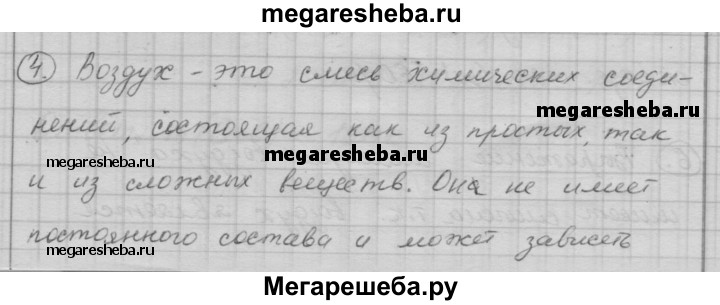 megaresheba.ru
4. Воздух - это смесь химических соеди-
megaresheba.ru
нений, состоящая как из простых, так
megaresheba.ru
megaresheba.ru
и из сложных веществ. Она не имеет
постоянного состава и может зависеть
megaresheba.ru
megaresheba.ru
Мегарешеба.ру